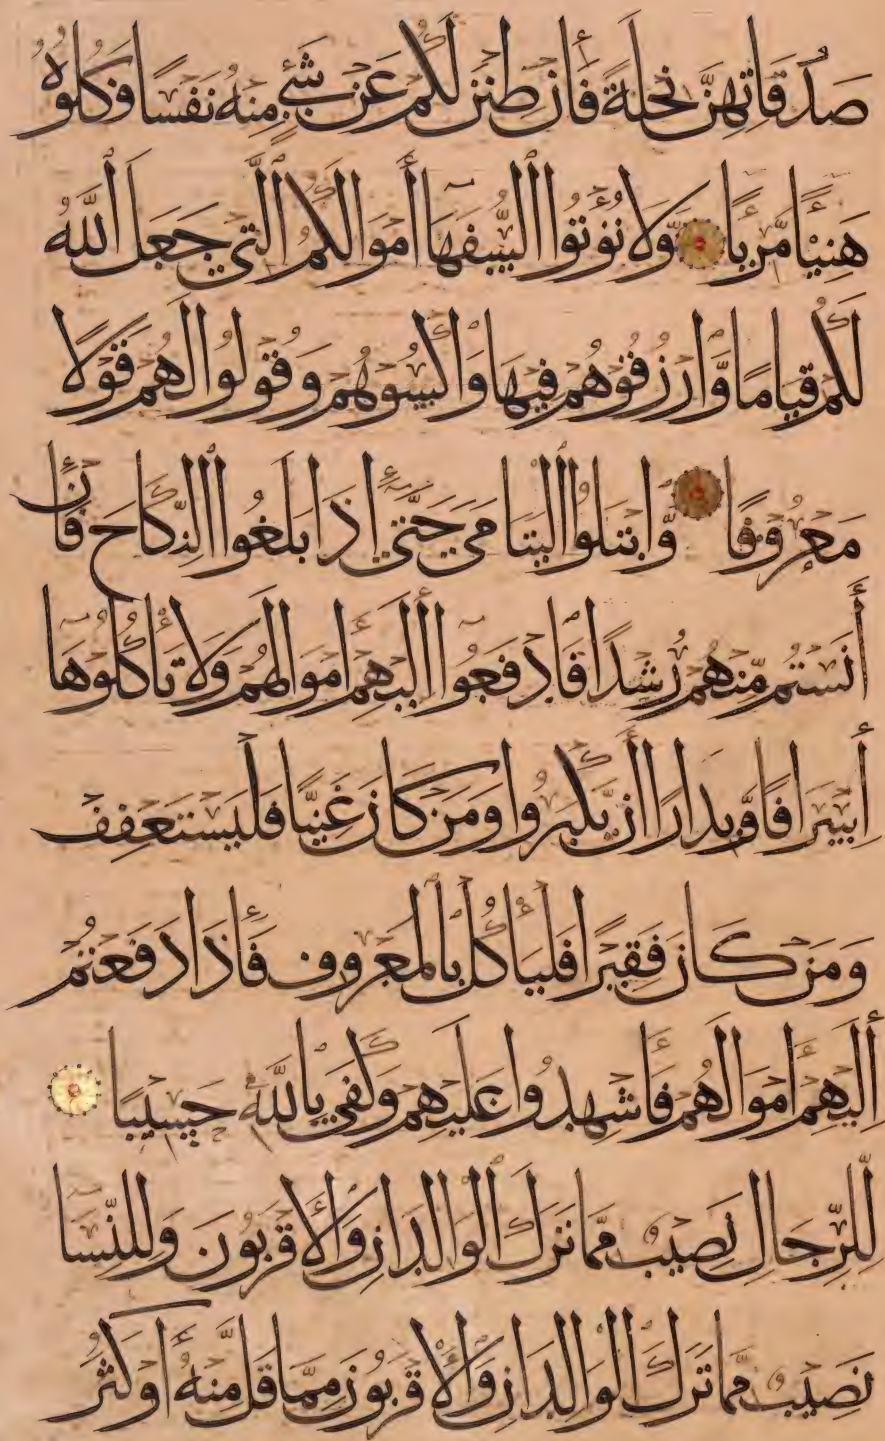 صَدُقَاتِهِنَّ نِحْلَةً فَإِن طِبْنَ لَكُمْ عَن شَيْءٍ مِنْهُ نَفْسًا فَكُلُوهُ
هَنِيئًا مَّرِيئًا وَلَا تُؤْتُوا السُّفَهَا أَمْوَالَكُمُ الَّتِي جَعَلَ اللَّهُ
لَكُمْ قِيَامًا وَّارْزُقُوهُمْ فِيهَا وَاكْسُوهُمْ وَقُولُوا لَهُمْ قَوْلًا
مَعْرُوفًا وَّابْتَلُوا الْيَتَامَى حَتَّى إِذَا بَلَغُوا النِّكَاحَ فَإِن
أَنَسْتُم مِّنْهُمْ رُشْدًا فَادْفَعُوا إِلَيْهِمْ أَمْوَالَهُمْ وَلَا تَأْكُلُوهَا
إِسْرَافًا وَّبِدَارًا أَن يَّكْبَرُوا وَمَن كَانَ غَنِيًّا فَلْيَسْتَعْفِفْ
وَمَن كَانَ فَقِيرًا فَلْيَأْكُلْ بِالْمَعْرُوفِ فَإِذَا دَفَعْتُمْ
إِلَيْهِمْ أَمْوَالَهُمْ فَأَشْهِدُوا عَلَيْهِمْ وَكَفَى بِاللَّهِ حَسِيبًا
لِّلرِّجَالِ نَصِيبٌ مِمَّا تَرَكَ الْوَالِدَانِ وَالْأَقْرَبُونَ وَلِلنِّسَا
نَصِيبٌ مِّمَّا تَرَكَ الْوَالِدَانِ وَالْأَقْرَبُونَ مِمَّا قَلَّ مِنْهُ أَوْ كَثُرَ